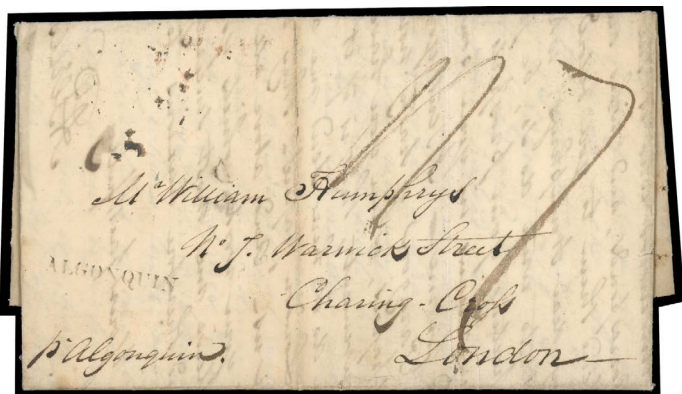 Mr William Humphrys
No 7. Warwick Street
Charing-Cross
London
ALGONQUIN
pr Algonquin.